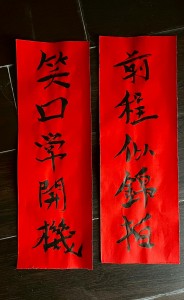 前程似錦
笑口常開機